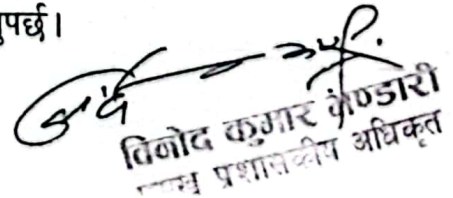 पर्छ।
विनोद कुमार भण्डारी
प्रशासकीय अधिकृत